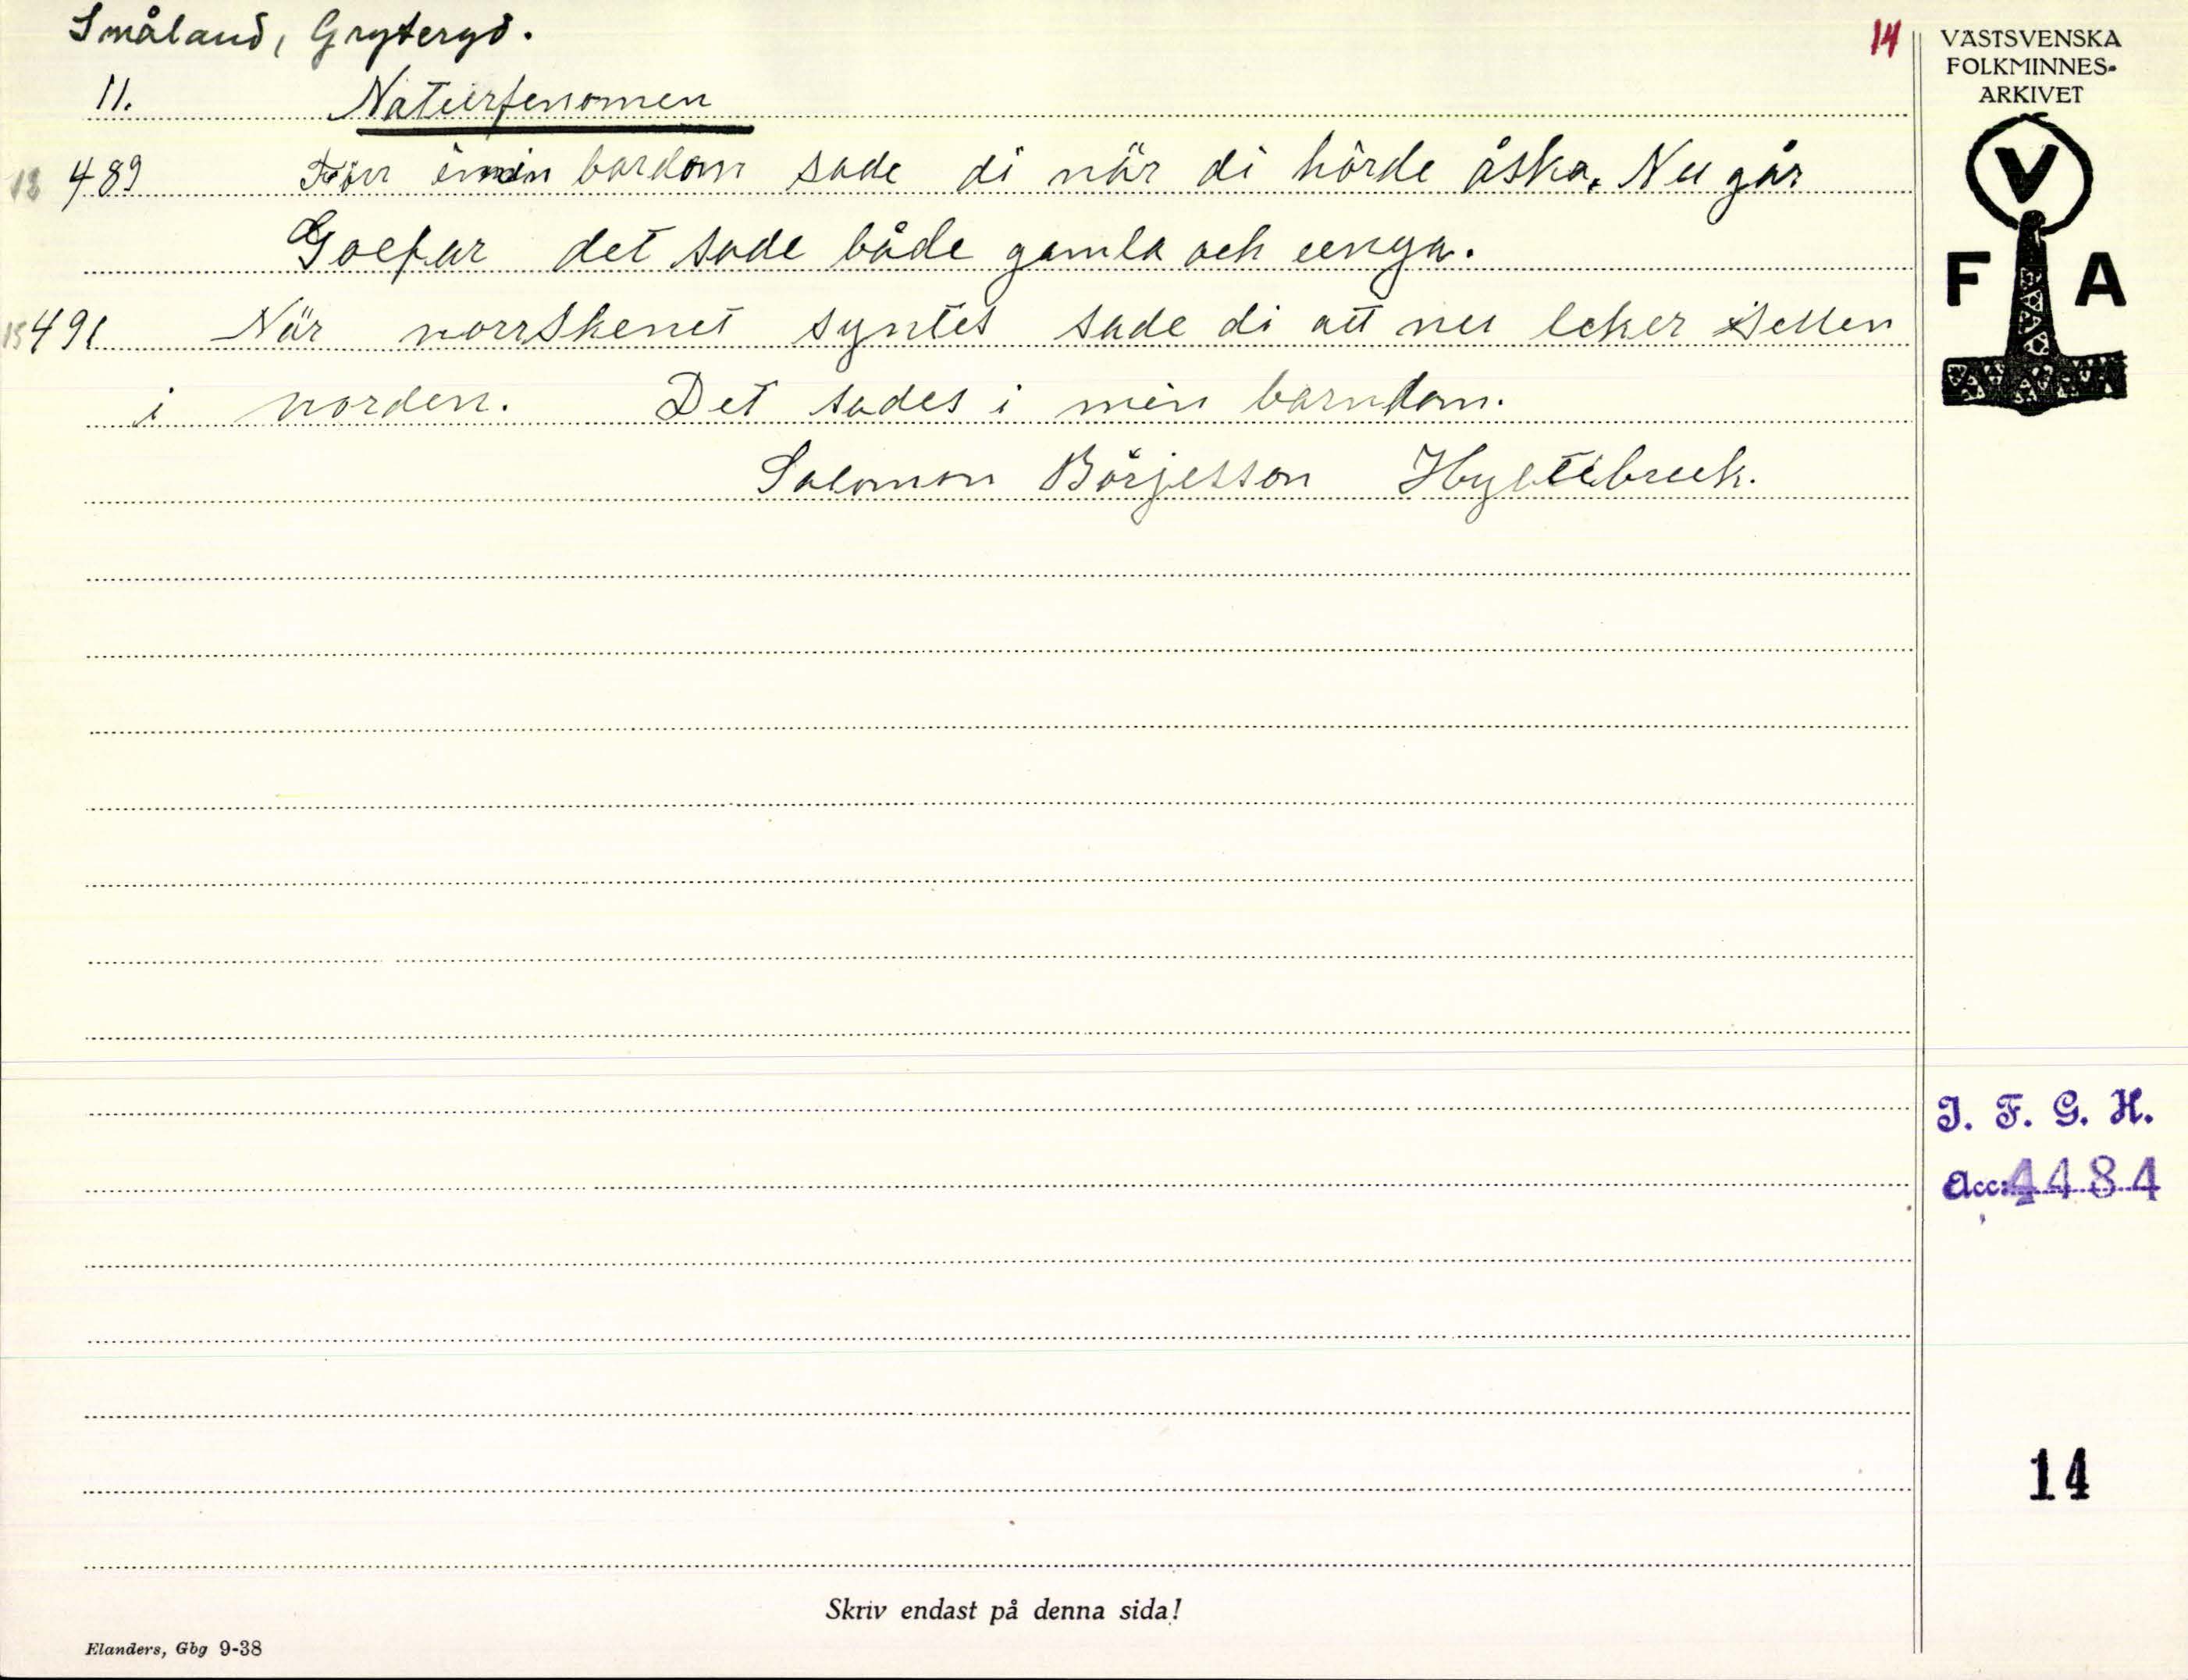 Småland, Gryteryd.
14
VÄSTSVENSKA
FOLKMINNES-
ARKIVET
11. Naturfenomen
13 489 Förr i min bardom sade di när di hörde åska. Nu går
Goefar det sade både gamla och unga.
15 491 När norrskenet syntes sade di att nu leker Sillen
i norden. Det sades i min barndom.
Salomon Börjesson Hyltebruk.
V
F A
I. F. G. H.
Acc: 4484
14
Skriv endast på denna sida!
Elanders, Gbg 9-38